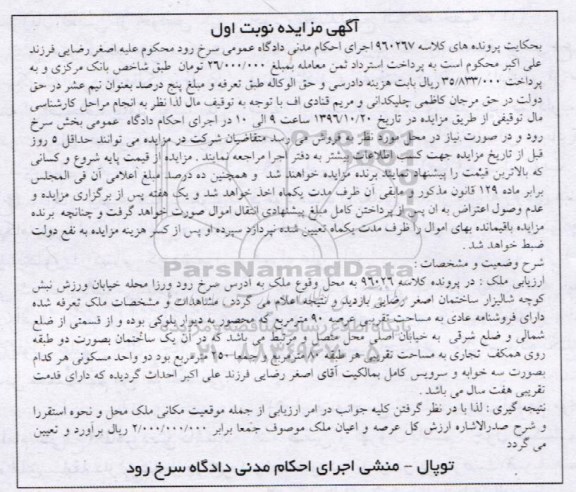 آگهی مزایده نوبت اول
بحکایت پرونده های کلاسه ۹۶۰۲۶۷ اجرای احکام مدنی دادگاه عمومی سرخ رود محکوم علیه اصغر رضایی فرزند
علی اکبر محکوم است به پرداخت استرداد ثمن معامله بمبلغ ۲۶/۰۰۰/۰۰۰ تومان طبق شاخص بانک مرکزی و به
پرداخت ۳۵/۸۳۳/۰۰۰ ریال بابت هزینه دادرسی و حق الوکاله طبق تعرفه و مبلغ پنج درصد بعنوان نیم عشر در حق
دولت در حق مرجان کاظمی چلیکدانی و مریم قنادی اف با توجه به توقیف مال لذا نظر به انجام مراحل کارشناسی
مال توقیفی از طریق مزایده در تاریخ ۱۳۹۶/۱۰/۲۰ ساعت ۹ الی ۱۰ در اجرای احکام دادگاه عمومی بخش سرخ
رود و در صورت نیاز در محل مورد نظر به فروش می رسد متقاضیان شرکت در مزایده می توانند حداقل ۵ روز
قبل از تاریخ مزایده جهت کسب اطلاعات بیشتر به دفتر اجرا مراجعه نمایند . مزایده از قیمت پایه شروع و کسانی
که بالاترین قیمت را پیشنهاد نمایند برنده مزایده خواهند شد و همچنین ده درصد مبلغ اعلامی آن فی المجلس
برابر ماده ۱۲۹ قانون مذکور و مابقی آن ظرف مدت یکماه اخذ خواهد شد و یک هفته پس از برگزاری مزایده و
عدم وصول اعتراض به ان پس از پرداختن کامل مبلغ پیشنهادی انتقال اموال صورت خواهد گرفت و چنانچه برنده
مزایده باقیمانده بهای اموال را ظرف مدت یکماه تعیین شده نپردازد سپرده او پس از کسر هزینه مزایده به نفع دولت
ضبط خواهد شد .
شرح وضعیت و مشخصات :
ارزیابی ملک : در پرونده کلاسه ۹۶۰۲۶ به محل وقوع ملک به ادرس سرخ رود ورزا محله خیابان ورزش نبش
کوچه شالیزار ساختمان اصغر رضایی بازدید و نتیجه اعلام می گردد . مشاهدات و مشخصات ملک تعرفه شده
دارای فروشنامه عادی به مساحت تقریبی عرصه ۹۰ مترمربع که محصور به دیوار بلوکی بوده و از قسمتی از ضلع
شمالی و ضلع شرقی به خیابان اصلی محل متصل و مرتبط می باشد که در آن یک ساختمان بصورت دو طبقه
روی همکف تجاری به مساحت تقریبی هر طبقه ۸۰ مترمربع و جمعا ۲۵۰ مترمربع بود دو واحد مسکونی هر کدام
بصورت سه خوابه و سرویس کامل بمالکیت آقای اصغر رضایی فرزند علی اکبر احداث گردیده که دارای قدمت
تقریبی هفت سال می باشد .
نتیجه گیری : لذا با در نظر گرفتن کلیه جوانب در امر ارزیابی از جمله موقعیت مکانی ملک محل و نحوه استقررا
و شرح صدرالاشاره ارزش کل عرصه و اعیان ملک موصوف جمعا برابر ۲/۰۰۰/۰۰۰/۰۰۰ ریال برآورد و تعیین
می گردد
توپال - منشی اجرای احکام مدنی دادگاه سرخ رود
ParsNamadData